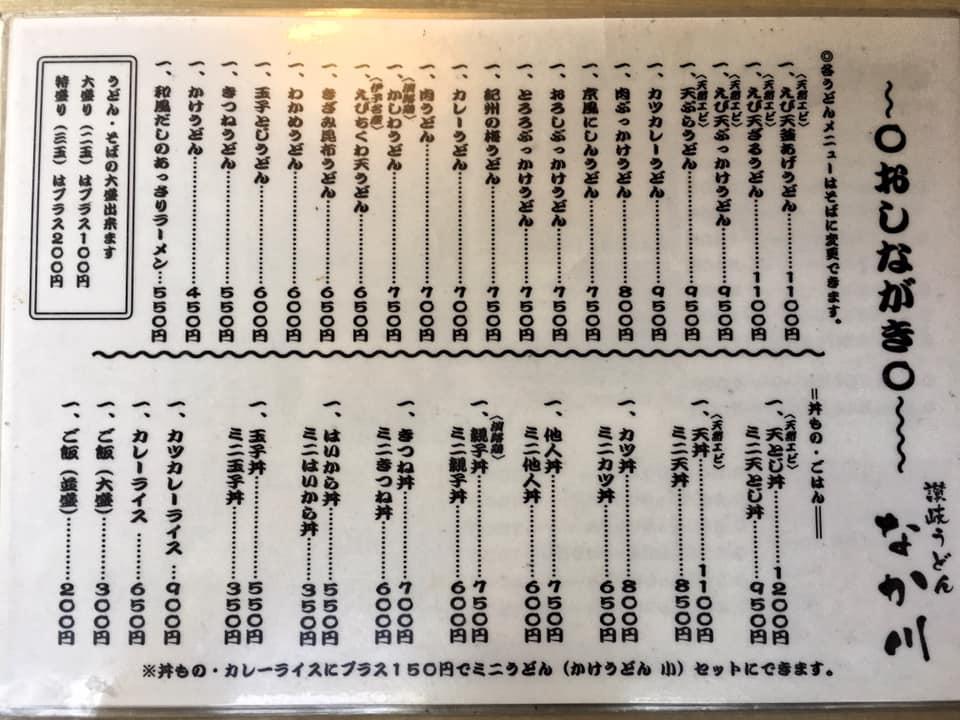 〜〇おしながき〇〜
讃岐うどん
なか川
◎各うどんメニューはそばに変更できます。
(天然エビ)
一、えび天釜あげうどん……1100円
(天然エビ)
一、えび天ざるうどん……1100円
(天然エビ)
一、えび天ぶっかけうどん……950円
(天然エビ)
一、天ぷらうどん……950円
一、カツカレーうどん……950円
一、肉ぶっかけうどん……800円
一、京風にしんうどん……750円
一、おろしぶっかけうどん……750円
一、とろろぶっかけうどん……750円
一、紀州の梅うどん……750円
一、カレーうどん……700円
一、肉うどん……700円
(淡路鶏)
一、かしわうどん……750円
(伊予名産)
一、えびちくわ天うどん……650円
一、きざみ昆布うどん……650円
一、わかめうどん……600円
一、玉子とじうどん……600円
一、きつねうどん……550円
一、かけうどん……450円
一、和風だしのあっさりラーメン……550円
うどん・そばの大盛出来ます
大盛り(二玉)はプラス100円
特盛り(三玉)はプラス200円
=丼もの・ごはん=
(天然エビ)
一、天とじ丼……1200円
ミニ天とじ丼……950円
(天然エビ)
一、天丼……1100円
ミニ天丼……850円
一、カツ丼……800円
ミニカツ丼……650円
一、他人丼……750円
ミニ他人丼……600円
(淡路鶏)
一、親子丼……750円
ミニ親子丼……600円
一、きつね丼……700円
ミニきつね丼……600円
一、はいから丼……550円
ミニはいから丼……350円
一、玉子丼……550円
ミニ玉子丼……350円
一、カツカレーライス……900円
一、カレーライス……650円
一、ご飯(大盛)……300円
一、ご飯(並盛)……200円
※丼もの・カレーライスにプラス150円でミニうどん(かけうどん 小)セットにできます。